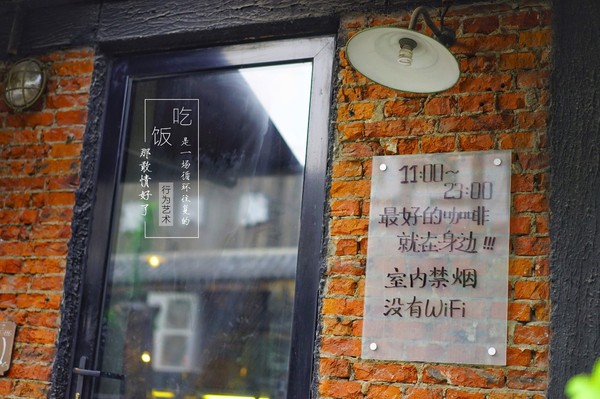 吃饭
是一场循环往复的
行为艺术
那敢情好了
11:00~
23:00
最好的咖啡
就在身边!!!
室内禁烟
没有WiFi